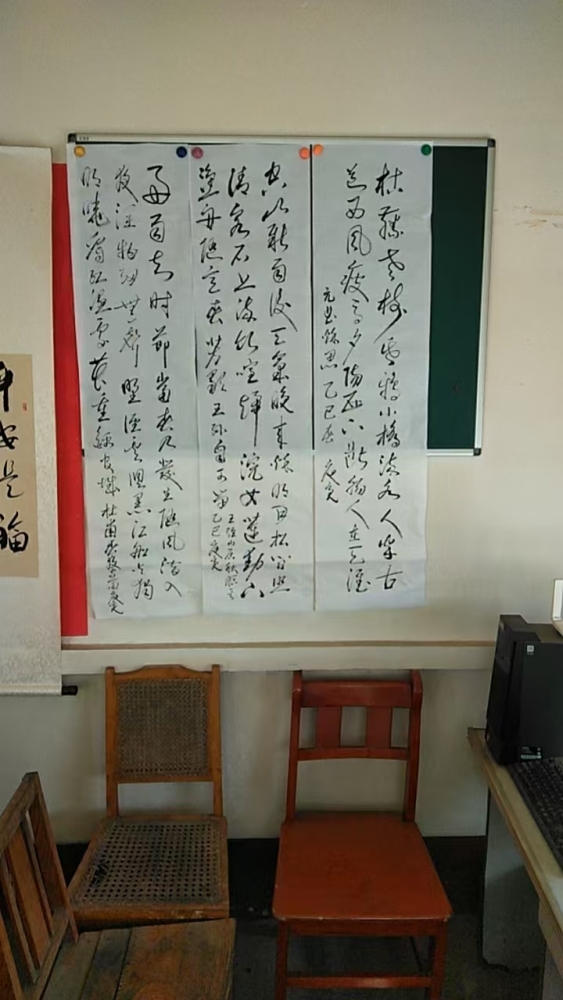 枯藤老树昏鴉小橋流水人家古
道西風瘦马夕陽西下斷腸人在天涯
元曲秋思 乙巳春
空山新雨後天氣晚来秋明月松间照
清泉石上流竹喧歸浣女莲動下
渔舟随意春芳歇王孙自可留
王维山居秋暝
乙巳
好雨知时節當春乃發生随風潜入
夜润物细無聲野径雲俱黑江船火獨
明曉看红湿處花重錦官城 杜甫春夜喜雨
安是福